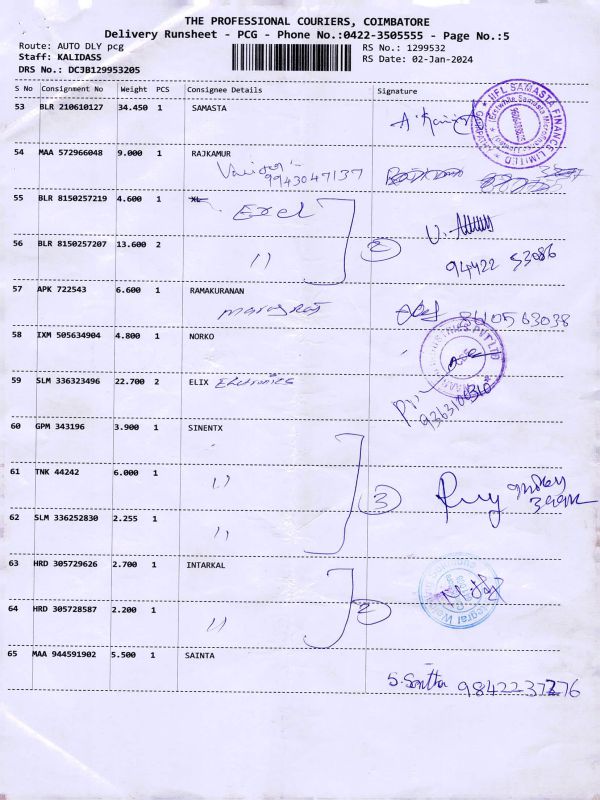 THE PROFESSIONAL COURIERS, COIMBATORE
Delivery Runsheet - PCG - Phone No.:0422-3505555 - Page No.:5
Route: AUTO DLY pcg
RS No.: 1299532
Staff: KALIDASS
RS Date: 02-Jan-2024
DRS No.: DC3B129953205
S No Consignment No Weight PCS Consignee Details Signature
53 BLR 210610127 34.450 1 SAMASTA
IIFL SAMASTA FINANCE LIMITED
54 MAA 572966048 9.000 1 RAJKAMUR
9943047137
55 BLR 8150257219 4.600 1 XL
Excel
56 BLR 8150257207 13.600 2
11
2
94422 53086
57 APK 722543 6.600 1 RAMAKURANAN
8610563038
58 IXM 505634904 4.800 1 NORKO
59 SLM 336323496 22.700 2 ELIX Electronics
9363100310
60 GPM 343196 3.900 1 SINENTX
61 TNK 44242 6.000 1
11
3
62 SLM 336252830 2.255 1
11
63 HRD 305729626 2.700 1 INTARKAL
64 HRD 305728587 2.200 1
11
2
65 MAA 944591902 5.500 1 SAINTA
S. Santha 9842237276